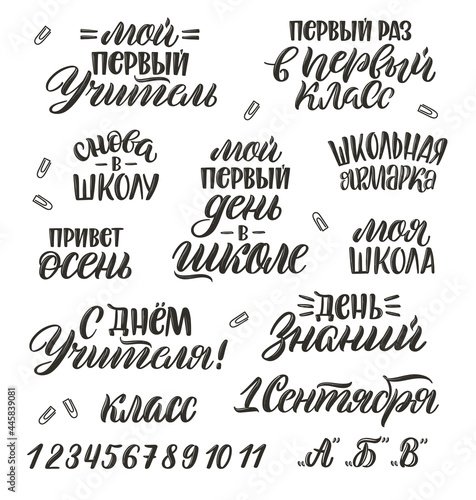 мой
первый
Учитель
первый раз
в первый
класс
снова
в
школу
мой
первый
день
в
школе
школьная
ярмарка
привет
осень
моя
школа
С днём
Учителя!
день
Знаний
класс
1 Сентября
1 2 3 4 5 6 7 8 9 10 11
„А” „Б” „В”
Adobe Stock | #445839081